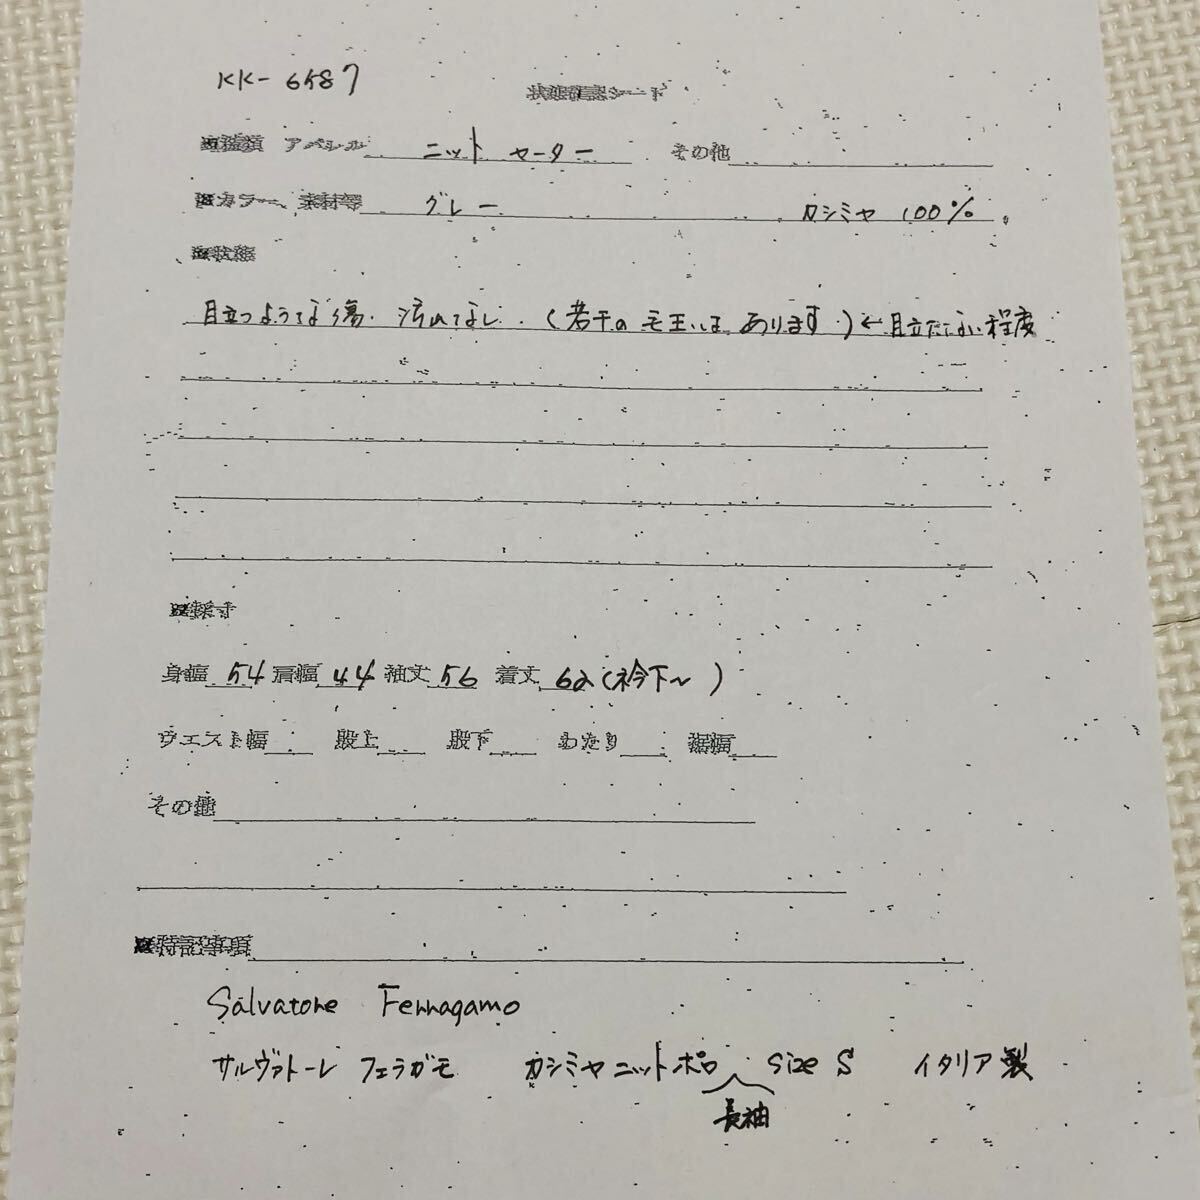 KK-6487
状態確認シート
■種類 アパレル ニット セーター その他
■カラー、素材等 グレー カシミヤ 100%
■状態
目立つような傷.汚れなし.(若干の毛玉はあります)←目立たない程度
■採寸
身幅 54 肩幅 44 袖丈 56 着丈 62(衿下~)
ウエスト幅 股上 股下 わたり 裾幅
その他
■特記事項
Salvatore Ferragamo
サルヴァトーレ フェラガモ カシミヤニットポロ size S イタリア製
長袖